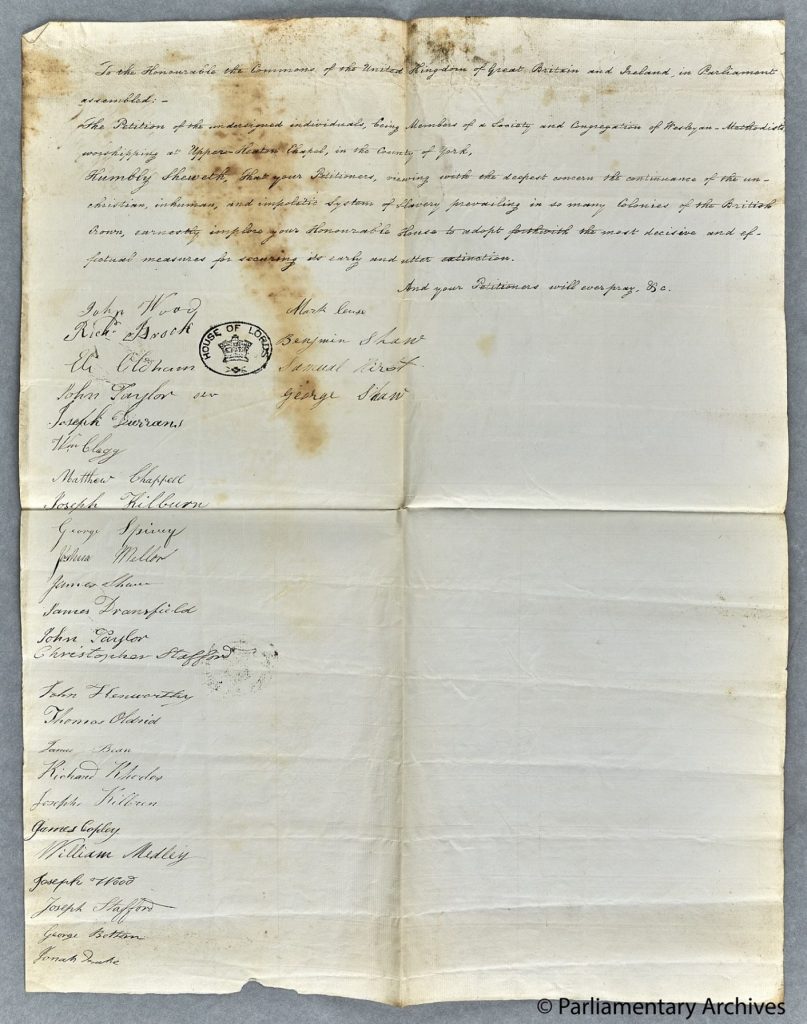 To the Honourable the Commons of the United Kingdom of Great Britain and Ireland, in Parliament
assembled: -
The Petition of the undersigned individuals, being Members of a Society and Congregation of Wesleyan-Methodists
worshipping at Upper-Heaton Chapel, in the County of York,
Humbly Sheweth, That your Petitioners, viewing with the deepest concern the continuance of the un-
christian, inhuman, and impolitic system of Slavery prevailing in so many Colonies of the British
Crown, earnestly implore your Honourable House to adopt forthwith the most decisive and ef-
fectual measures for securing its early and utter extinction.
And your Petitioners will ever pray, &c.
John Wood
Richd Brook
Eli Oldham
John Taylor
Joseph Durrans
Wm Clegg
Matthew Chappell
Joseph Kilburn
George Spivey
Joshua Mellor
James Shaw
James Dransfield
John Taylor
Christopher Stafford
John
Thomas Oldrid
James Bean
Richard Rhodes
Joseph Kilburn
James Copley
William Medley
Joseph Wood
Joseph Stafford
George Bottom
Jonah
Mark
Benjmin Shaw
Samual Hirst
George Shaw
HOUSE OF LORDS
© Parliamentary Archives